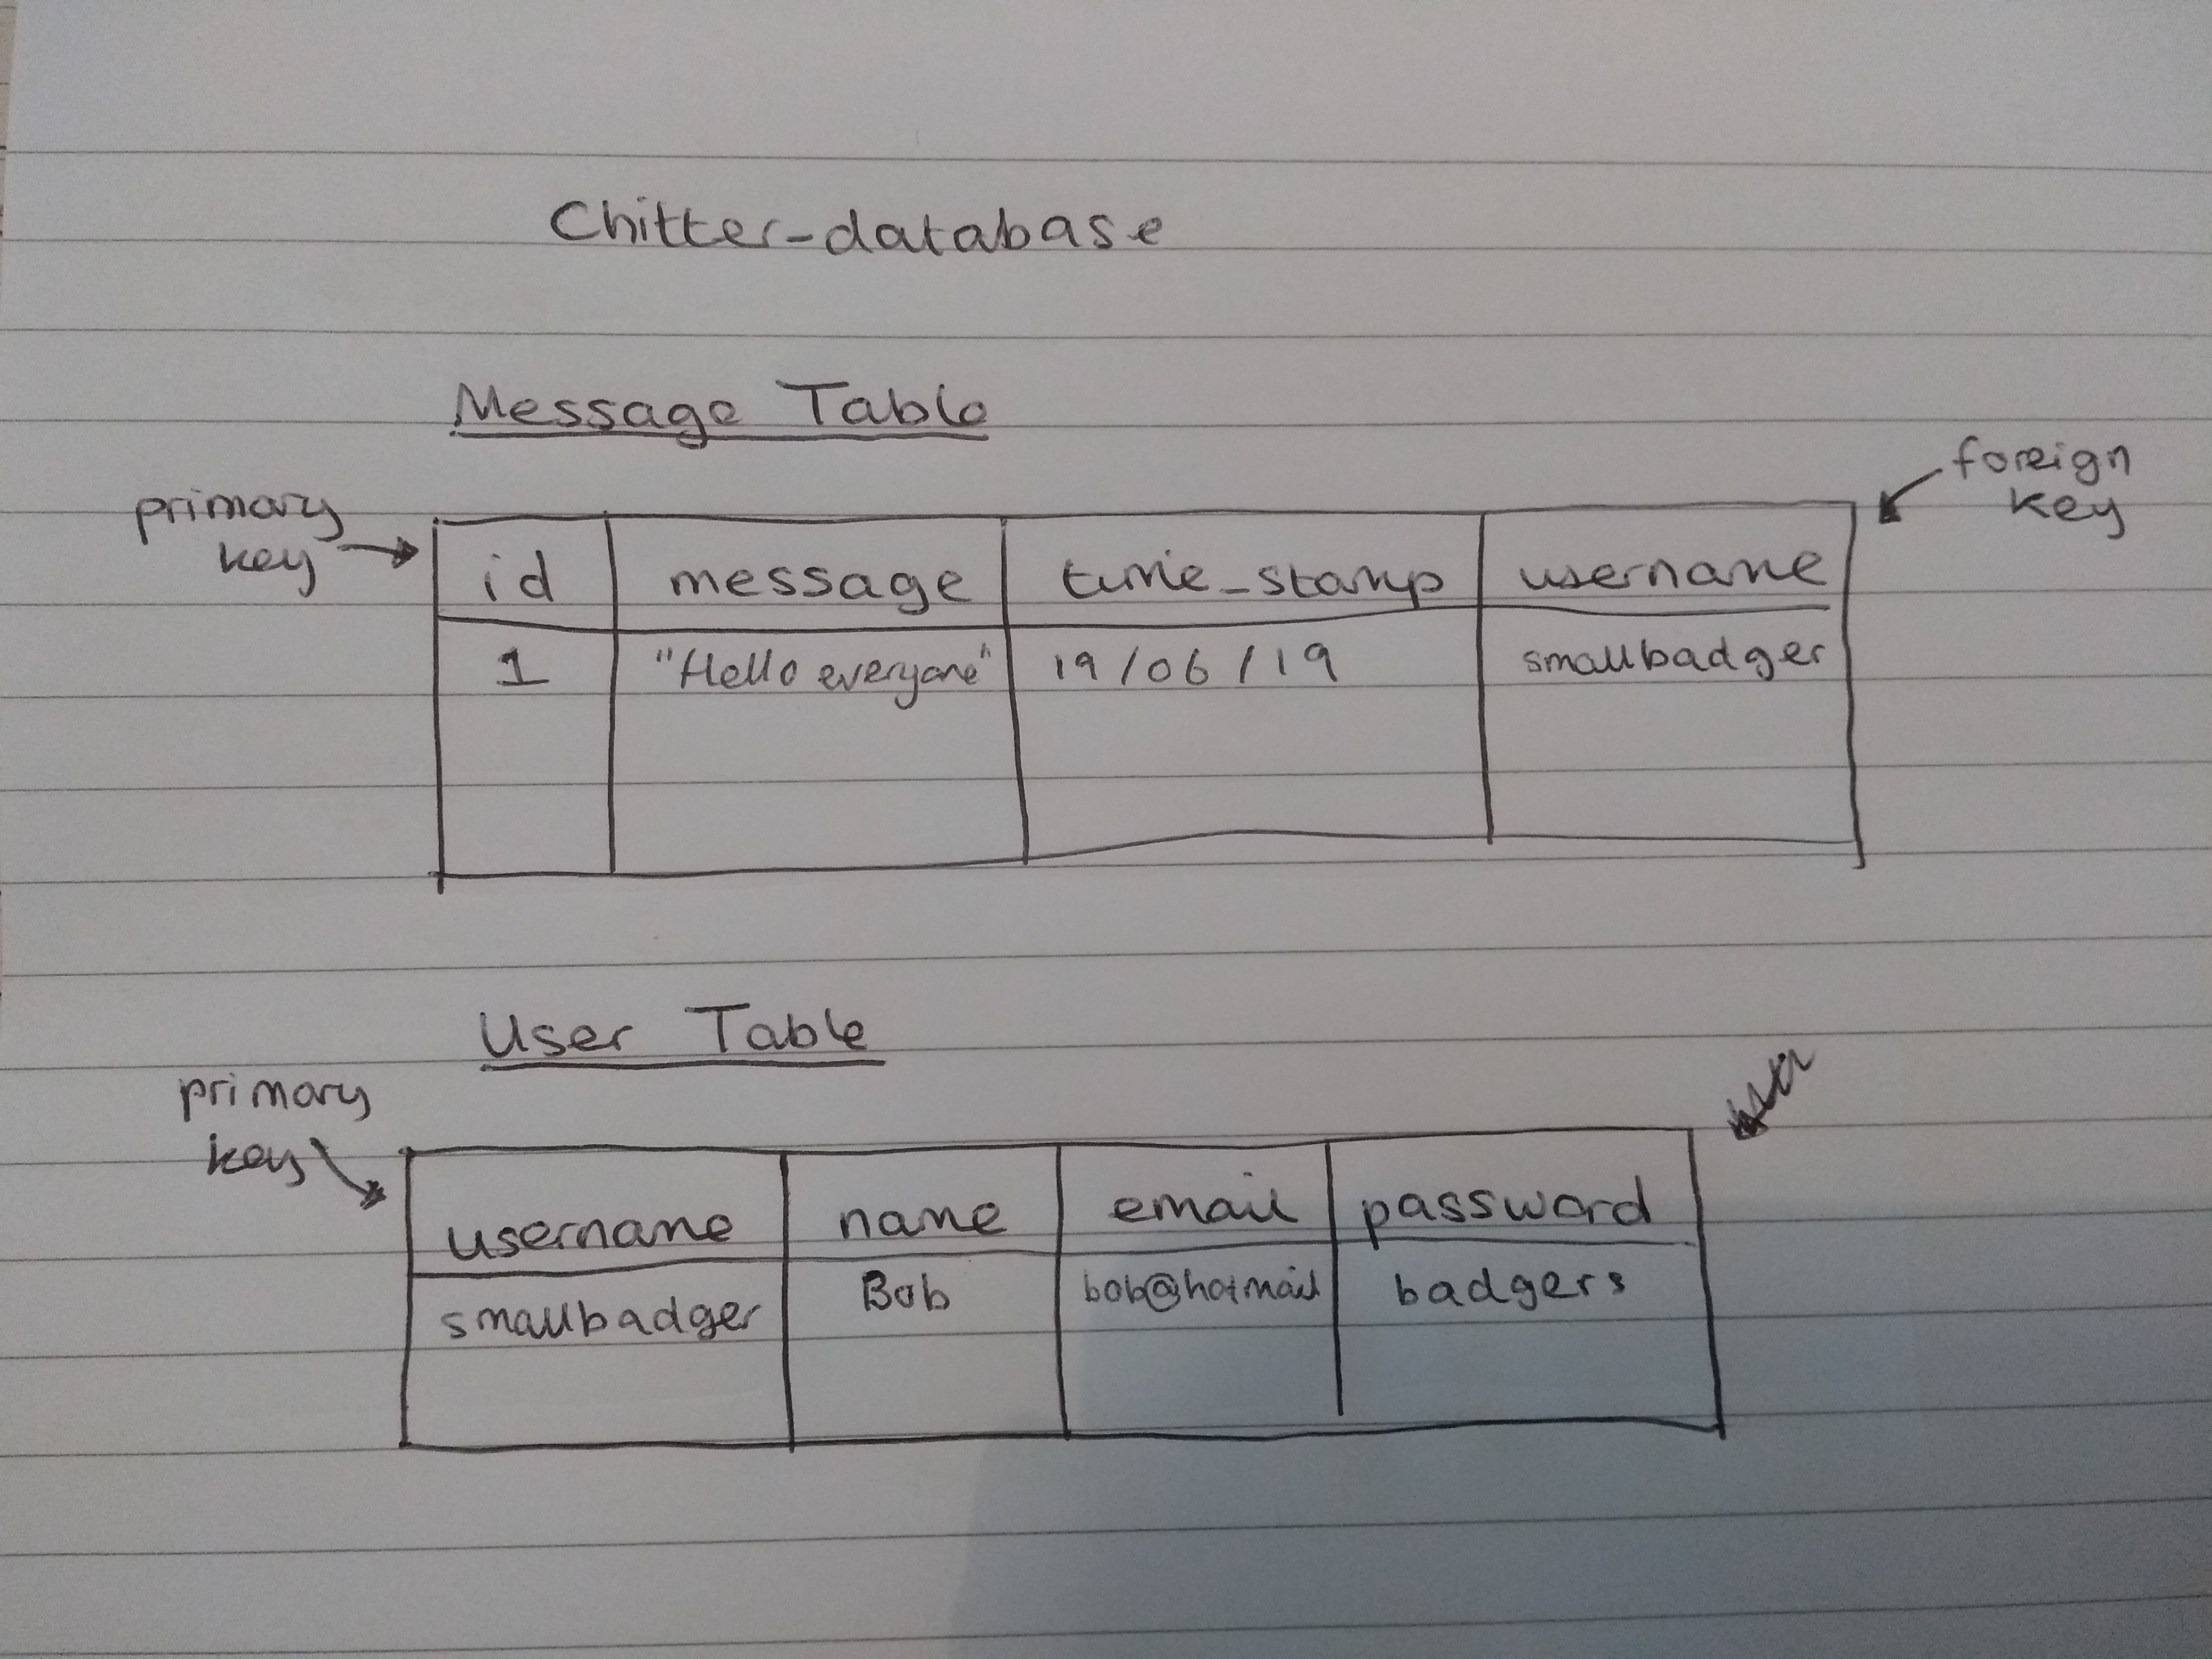 Chitter-database
Message Table
foreign
key
primary
key
id message time_stamp username
1 "Hello everyone" 19/06/19 smallbadger
User Table
primary
key
username name email password
smallbadger Bob bob@hotmail badgers